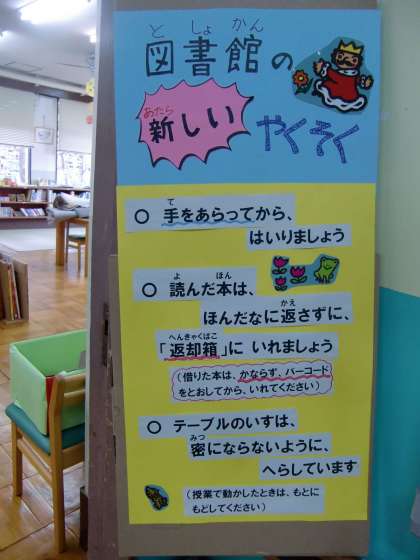 図書館の
新しい
やくそく
○ 手をあらってから、
はいりましょう
○ 読んだ本は、
ほんだなに返さずに、
「返却箱」に いれましょう
（借りた本は、かならず、バーコード
をとおしてから、いれてください）
○ テーブルのいすは、
密にならないように、
へらしています
（授業で動かしたときは、もとに
もどしてください）